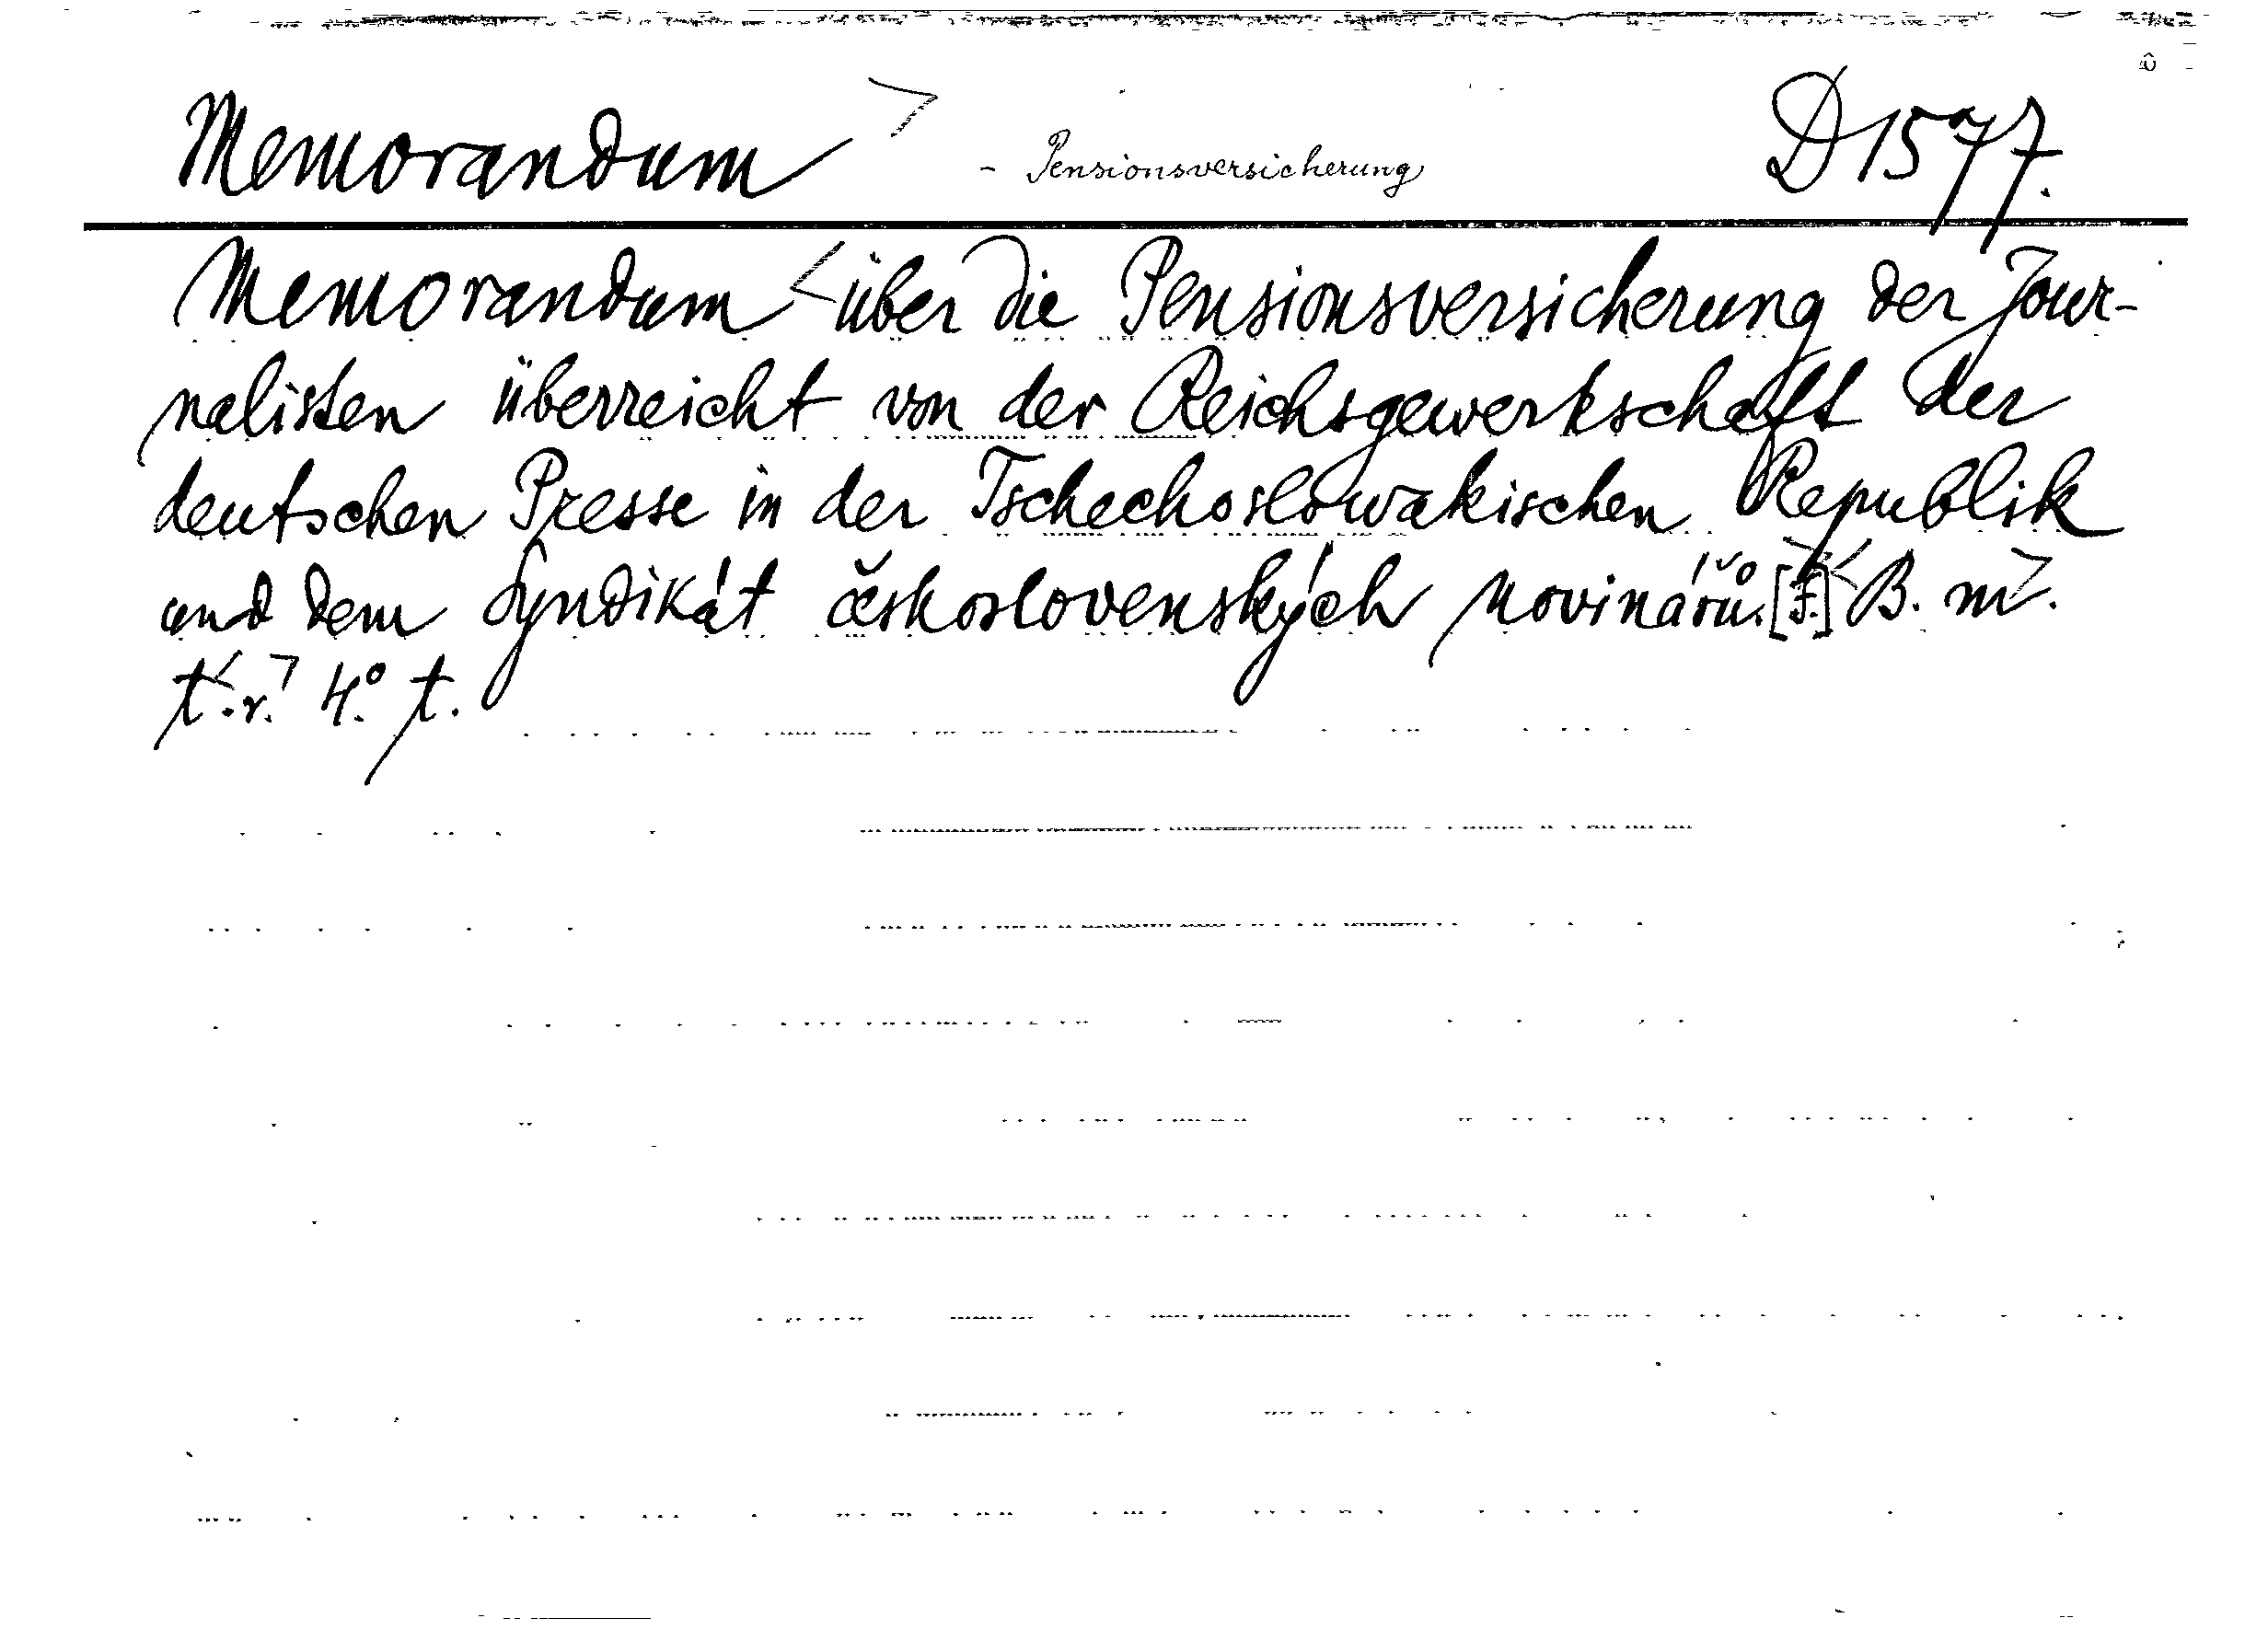 Memorandum > - Pensionsversicherung D 1577.
Memorandum < über die Pensionsversicherung der Jour-
nalisten überreicht von der Reichsgewerkschaft der
deutschen Presse in der Tschechoslowakischen Republik
und dem Syndikát československých novinářů. B. m.
t. r. 4.° t.